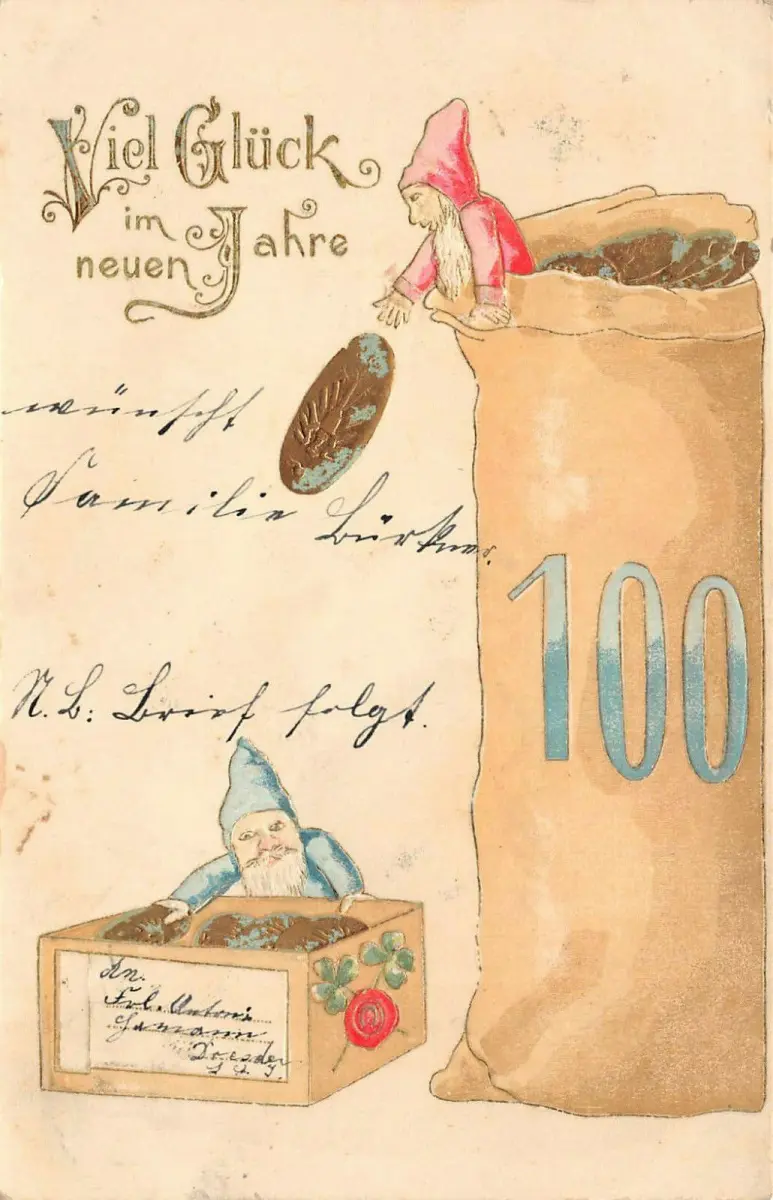 Viel Glück
im
neuen Jahre
wünscht
Familie Bürkner.
N.B: Brief folgt.
100
An.
Frl. Antoni
Hamann
Dresden